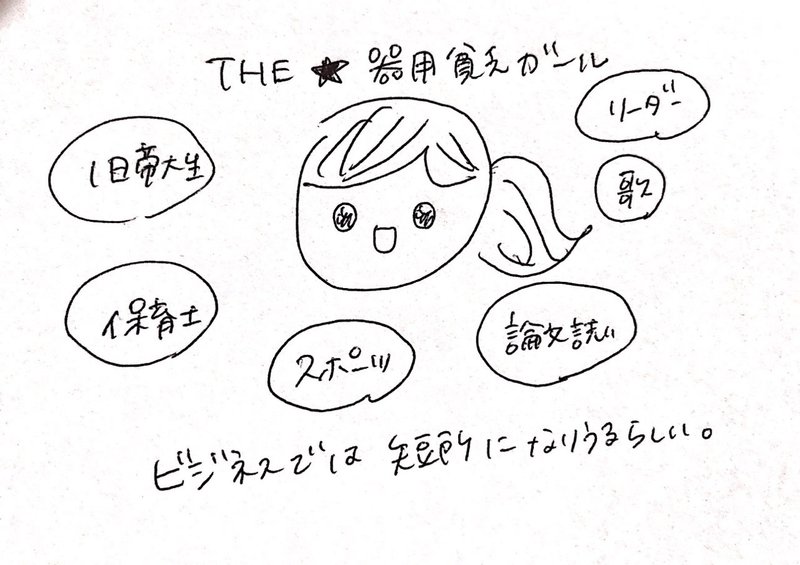 THE ★ 器用貧乏ガール
リーダー
旧帝大生
歌
保育士
論文誌
スポーツ
ビジネスでは 短所に なりうるらしい。